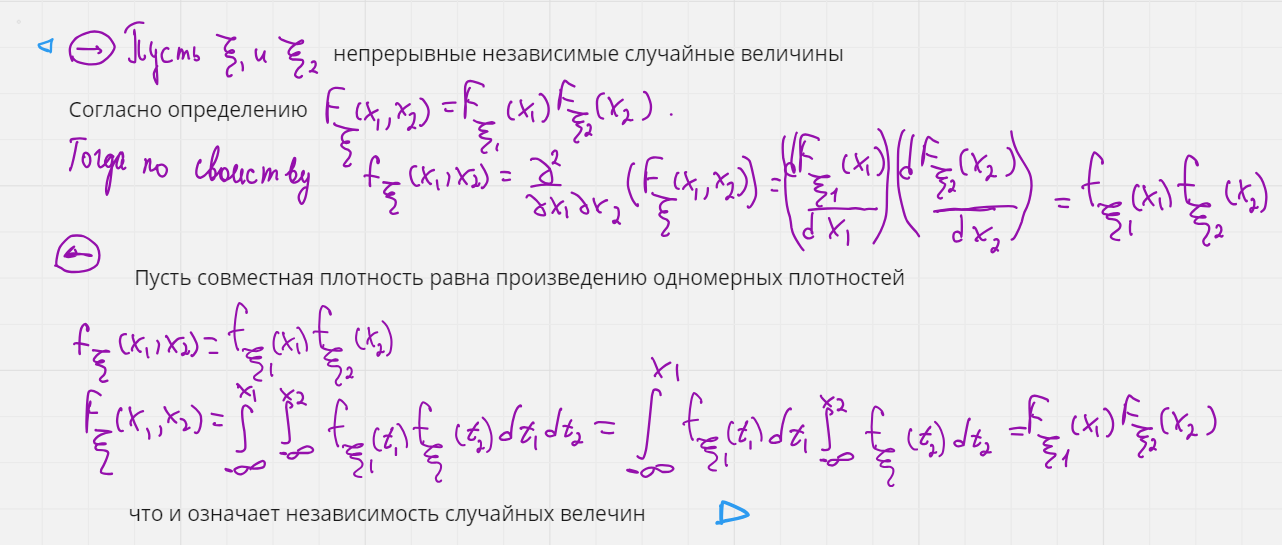 → Пусть ξ₁ и ξ₂ непрерывные независимые случайные величины
Согласно определению F_ξ(x₁, x₂) = F_ξ₁(x₁) F_ξ₂(x₂).
Тогда по свойству f_ξ(x₁, x₂) = ∂²/∂x₁∂x₂ (F_ξ(x₁, x₂)) = (dF_ξ₁(x₁)/dx₁)(dF_ξ₂(x₂)/dx₂) = f_ξ₁(x₁) f_ξ₂(x₂)
←
Пусть совместная плотность равна произведению одномерных плотностей
f_ξ(x₁, x₂) = f_ξ₁(x₁) f_ξ₂(x₂)
F_ξ(x₁, x₂) = ∫_{-∞}^{x₁} ∫_{-∞}^{x₂} f_ξ₁(t₁) f_ξ(t₂) dt₁ dt₂ = ∫_{-∞}^{x₁} f_ξ₁(t₁) dt₁ ∫_{-∞}^{x₂} f_ξ(t₂) dt₂ = F_ξ₁(x₁) F_ξ₂(x₂)
что и означает независимость случайных велечин